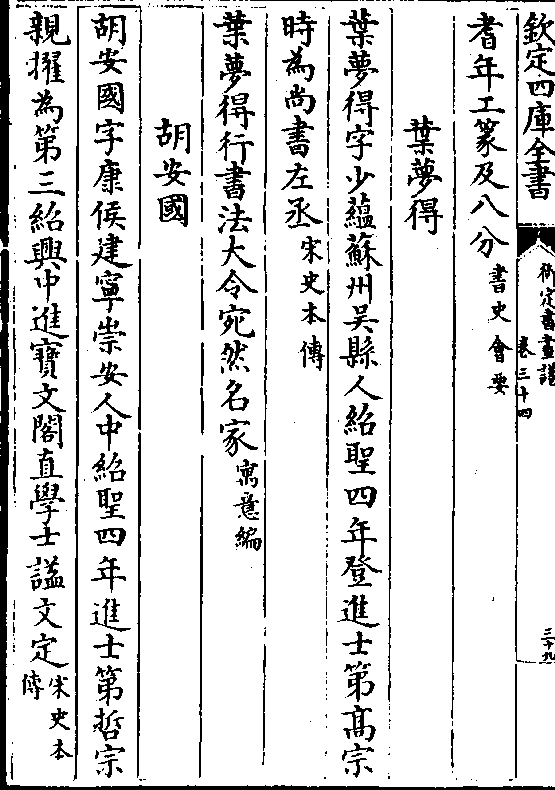 欽定四庫全書
御定書畫譜
卷三十四
三十九
耆年工篆及八分書史會要
葉夢得
葉夢得字少蘊蘇州吳縣人紹聖四年登進士第高宗
時為尚書左丞宋史本傳
葉夢得行書法大令宛然名家寓意編
胡安國
胡安國字康侯建寧崇安人中紹聖四年進士第哲宗
親擢為第三紹興中進寶文閣直學士諡文定宋史本傳